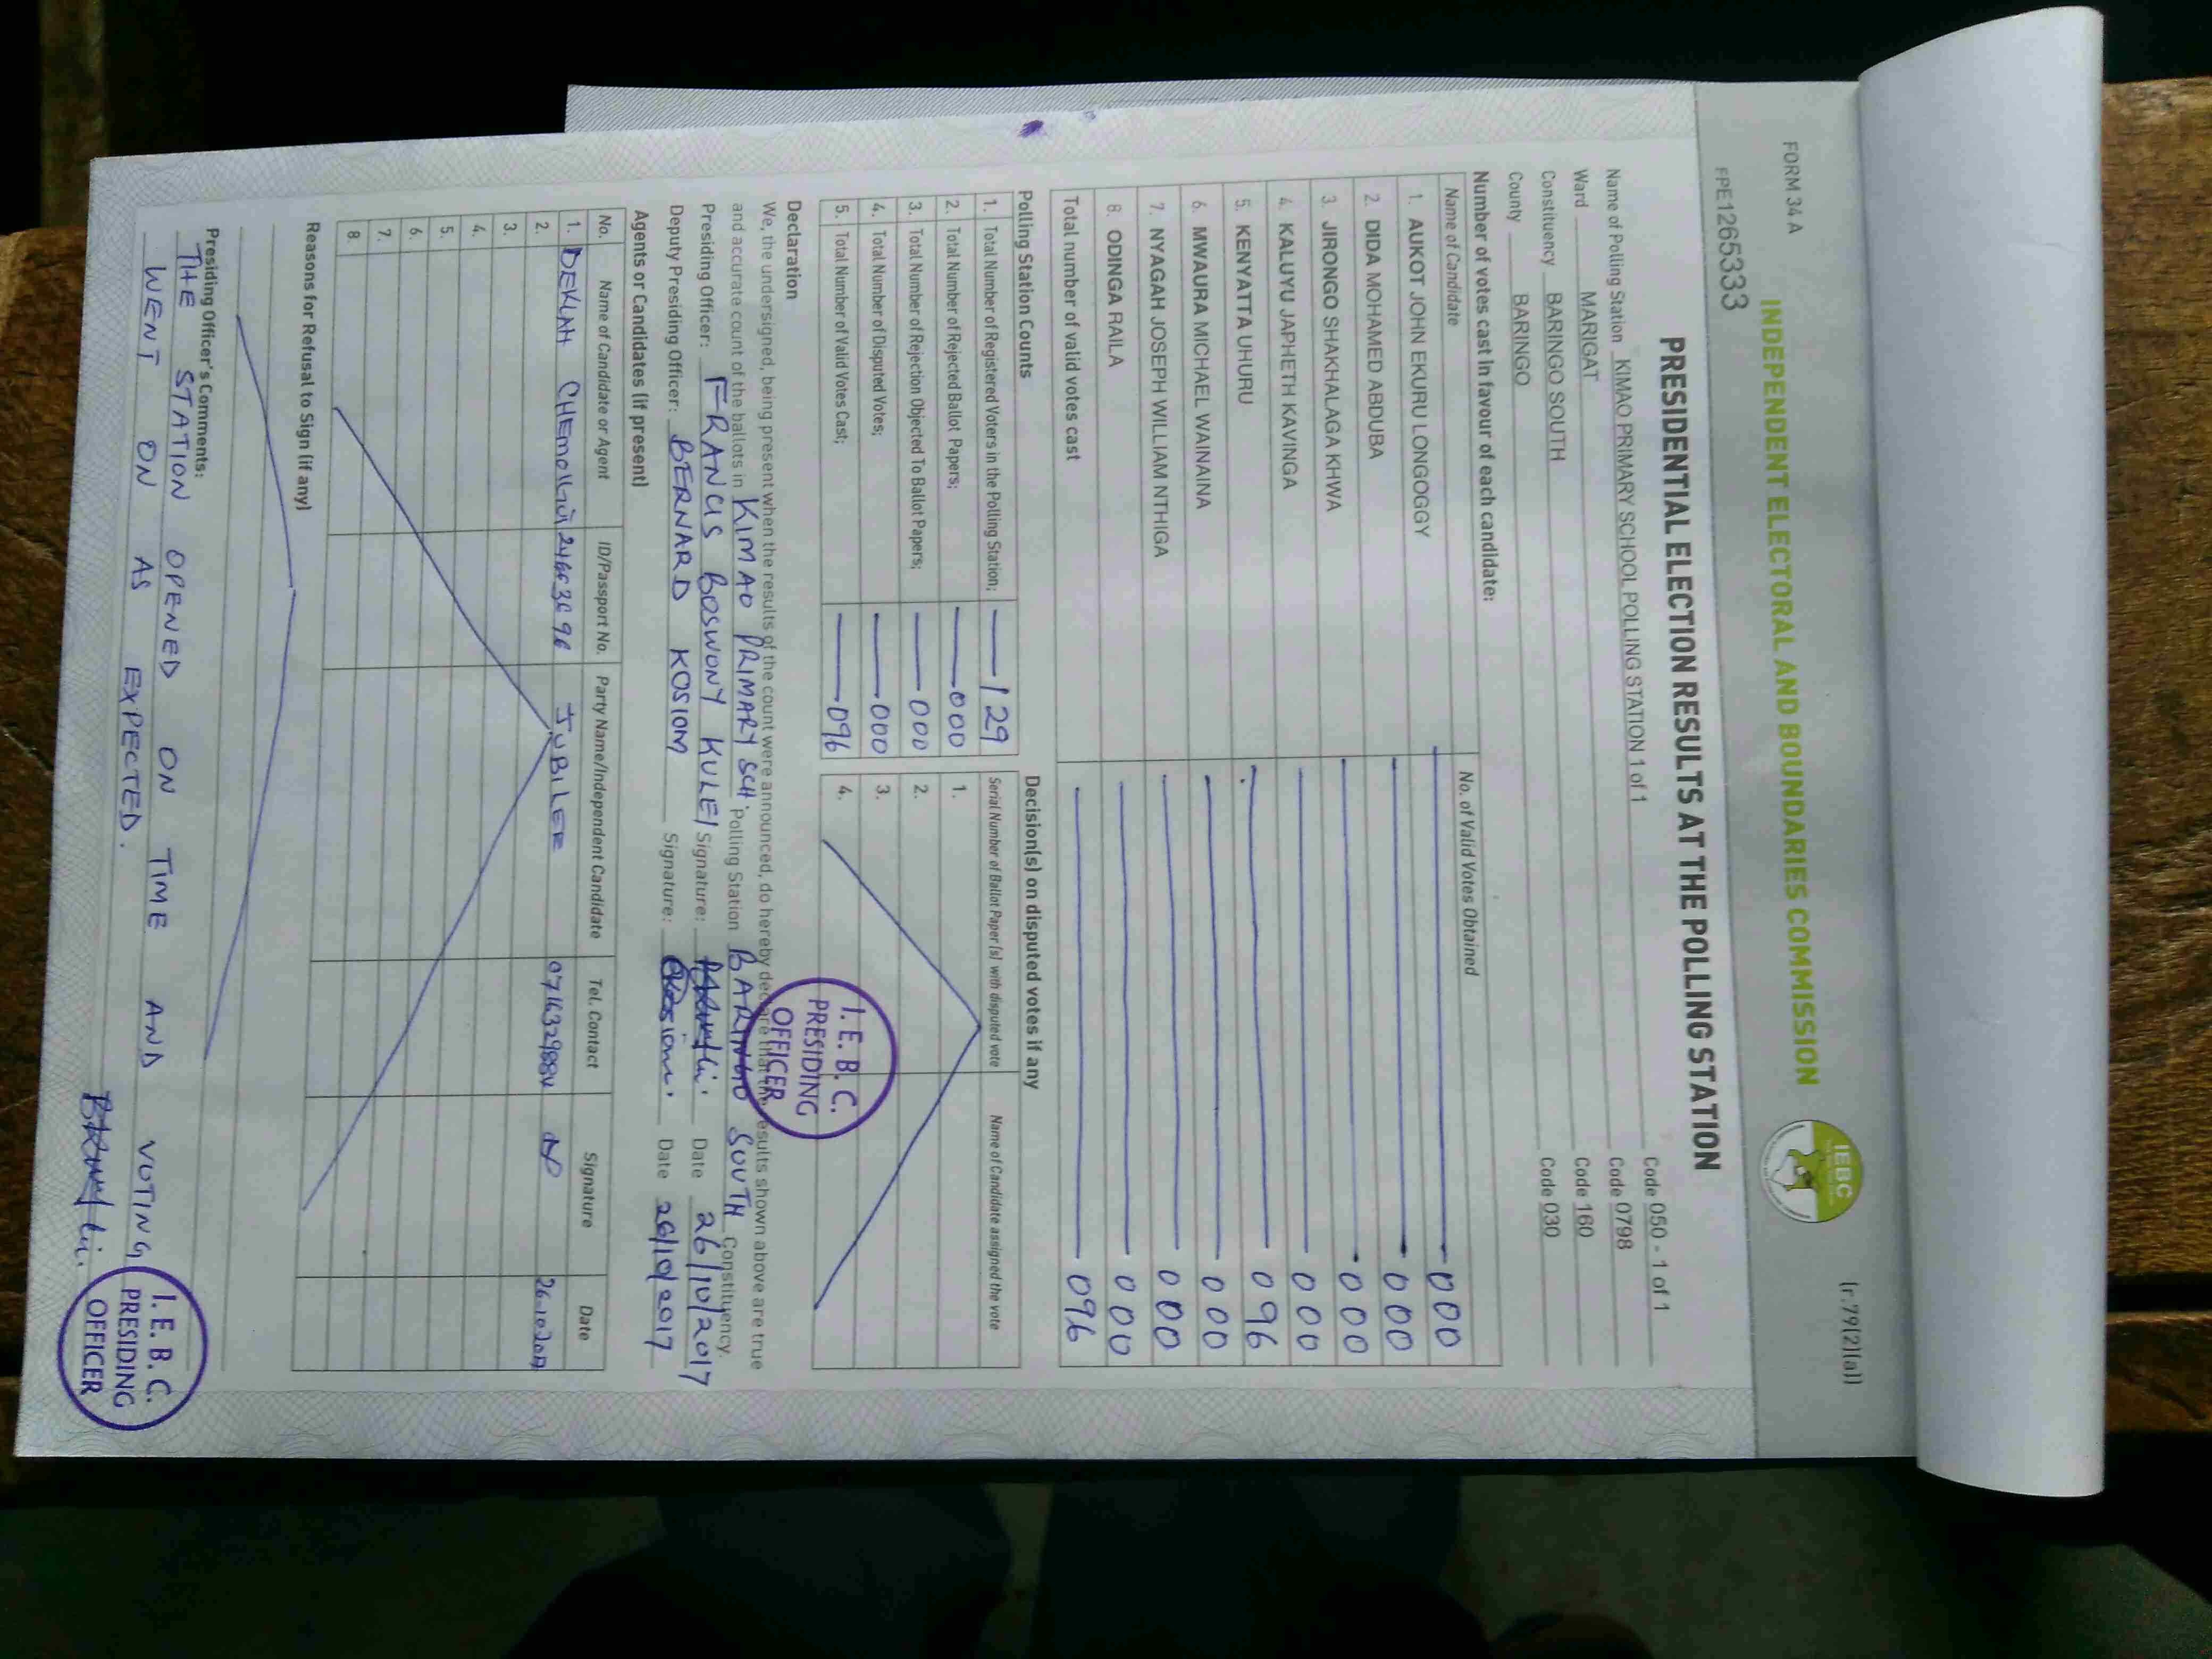 FORM 34 A
(r.79(2)(a))
INDEPENDENT ELECTORAL AND BOUNDARIES COMMISSION
IEBC
FPE1265333
PRESIDENTIAL ELECTION RESULTS AT THE POLLING STATION
Name of Polling Station KIMAO PRIMARY SCHOOL POLLING STATION 1 of 1 Code 050 - 1 of 1
Ward MARIGAT Code 0798
Constituency BARINGO SOUTH Code 160
County BARINGO Code 030
Number of votes cast in favour of each candidate:
Name of Candidate No. of Valid Votes Obtained
1. AUKOT JOHN EKURU LONGOGGY 000
2. DIDA MOHAMED ABDUBA 000
3. JIRONGO SHAKHALAGA KHWA 000
4. KALUYU JAPHETH KAVINGA 000
5. KENYATTA UHURU 096
6. MWAURA MICHAEL WAINAINA 000
7. NYAGAH JOSEPH WILLIAM NTHIGA 000
8. ODINGA RAILA 000
Total number of valid votes cast 096
Polling Station Counts
1. Total Number of Registered Voters in the Polling Station; 129
2. Total Number of Rejected Ballot Papers; 000
3. Total Number of Rejection Objected To Ballot Papers; 000
4. Total Number of Disputed Votes; 000
5. Total Number of Valid Votes Cast; 096
Decision(s) on disputed votes if any
Serial Number of Ballot Paper (s) with disputed vote Name of Candidate assigned the vote
1.
2.
3.
4.
I. E. B. C.
PRESIDING
OFFICER
Declaration
We, the undersigned, being present when the results of the count were announced, do hereby declare that the results shown above are true
and accurate count of the ballots in KIMAO PRIMARY SCH. Polling Station BARINGO SOUTH Constituency.
Presiding Officer: FRANCIS BOSWONY KULEI Signature: Date 26/10/2017
Deputy Presiding Officer: BERNARD KOSIOM Signature: Date 26/10/2017
Agents or Candidates (if present)
No. Name of Candidate or Agent ID/Passport No. Party Name/Independent Candidate Tel. Contact Signature Date
1. JUBILEE 26.10.2017
2.
3.
4.
5.
6.
7.
8.
Reasons for Refusal to Sign (if any)
Presiding Officer's Comments:
THE STATION OPENED ON TIME AND VOTING
WENT ON AS EXPECTED.
I. E. B. C.
PRESIDING
OFFICER